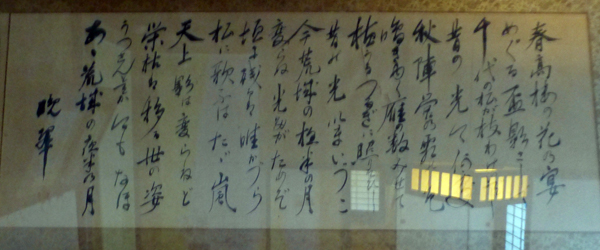 春高楼の花の宴
めぐる盃影さ
千代の松が枝わけ
昔の光今いづこ
秋陣営の霜の色
啼き行く雁の数みせて
植うるつるぎに照りそひし
昔の光いまいづこ
今荒城の夜半の月
変らぬ光たがためぞ
垣に残るは唯かづら
松に歌ふはたゞ嵐
天上影は変らねど
栄枯は移る世の姿
うつさん今もなほ
あゝ荒城の夜半の月
晩翠